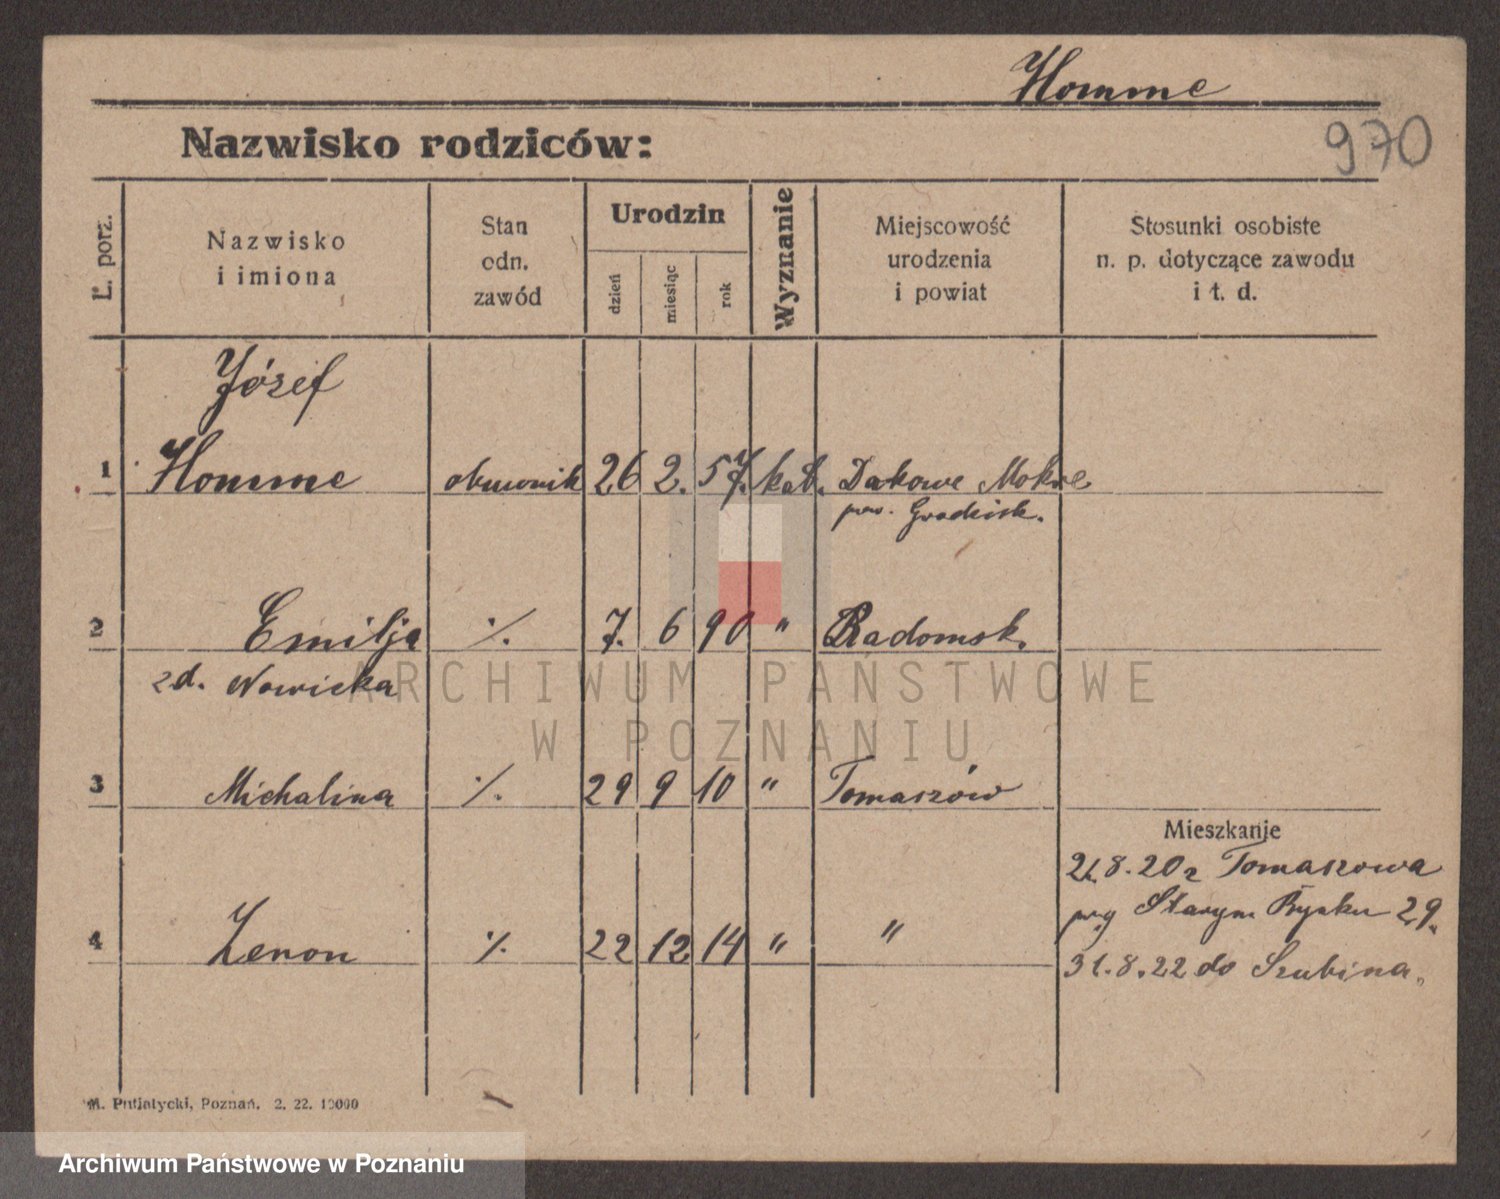 Homme
970
Nazwisko rodziców:
L. porz.
Nazwisko
i imiona
Stan
odn.
zawód
Urodzin
dzień
miesiąc
rok
Wyznanie
Miejscowość
urodzenia
i powiat
Stosunki osobiste
n. p. dotyczące zawodu
i t. d.
Józef
1 Homme obuwnik 26 2. 57. kat. Dakowe Mokre
pow. Grodzisk.
2 Emilja ·/. 7. 6 90 " Radomsk.
zd. Nowicka
3 Michalina ·/. 29 9 10 " Tomaszów
Mieszkanje
21.8.20 z Tomaszowa
przy Starym Rynku 29.
4 Zenon ·/. 22 12 14 " "
31.8.22 do Szubina.
M. Putiatycki, Poznań. 2. 22. 10000
ARCHIWUM PAŃSTWOWE
W POZNANIU
Archiwum Państwowe w Poznaniu